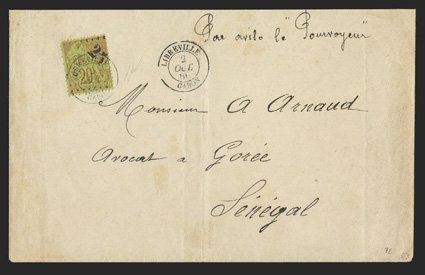 Par aviso le "Pourvoyeur"
LIBREVILLE
2
OCT
GABON
25
20
Monsieur A Arnaud
Avocat à Gorée
Sénégal